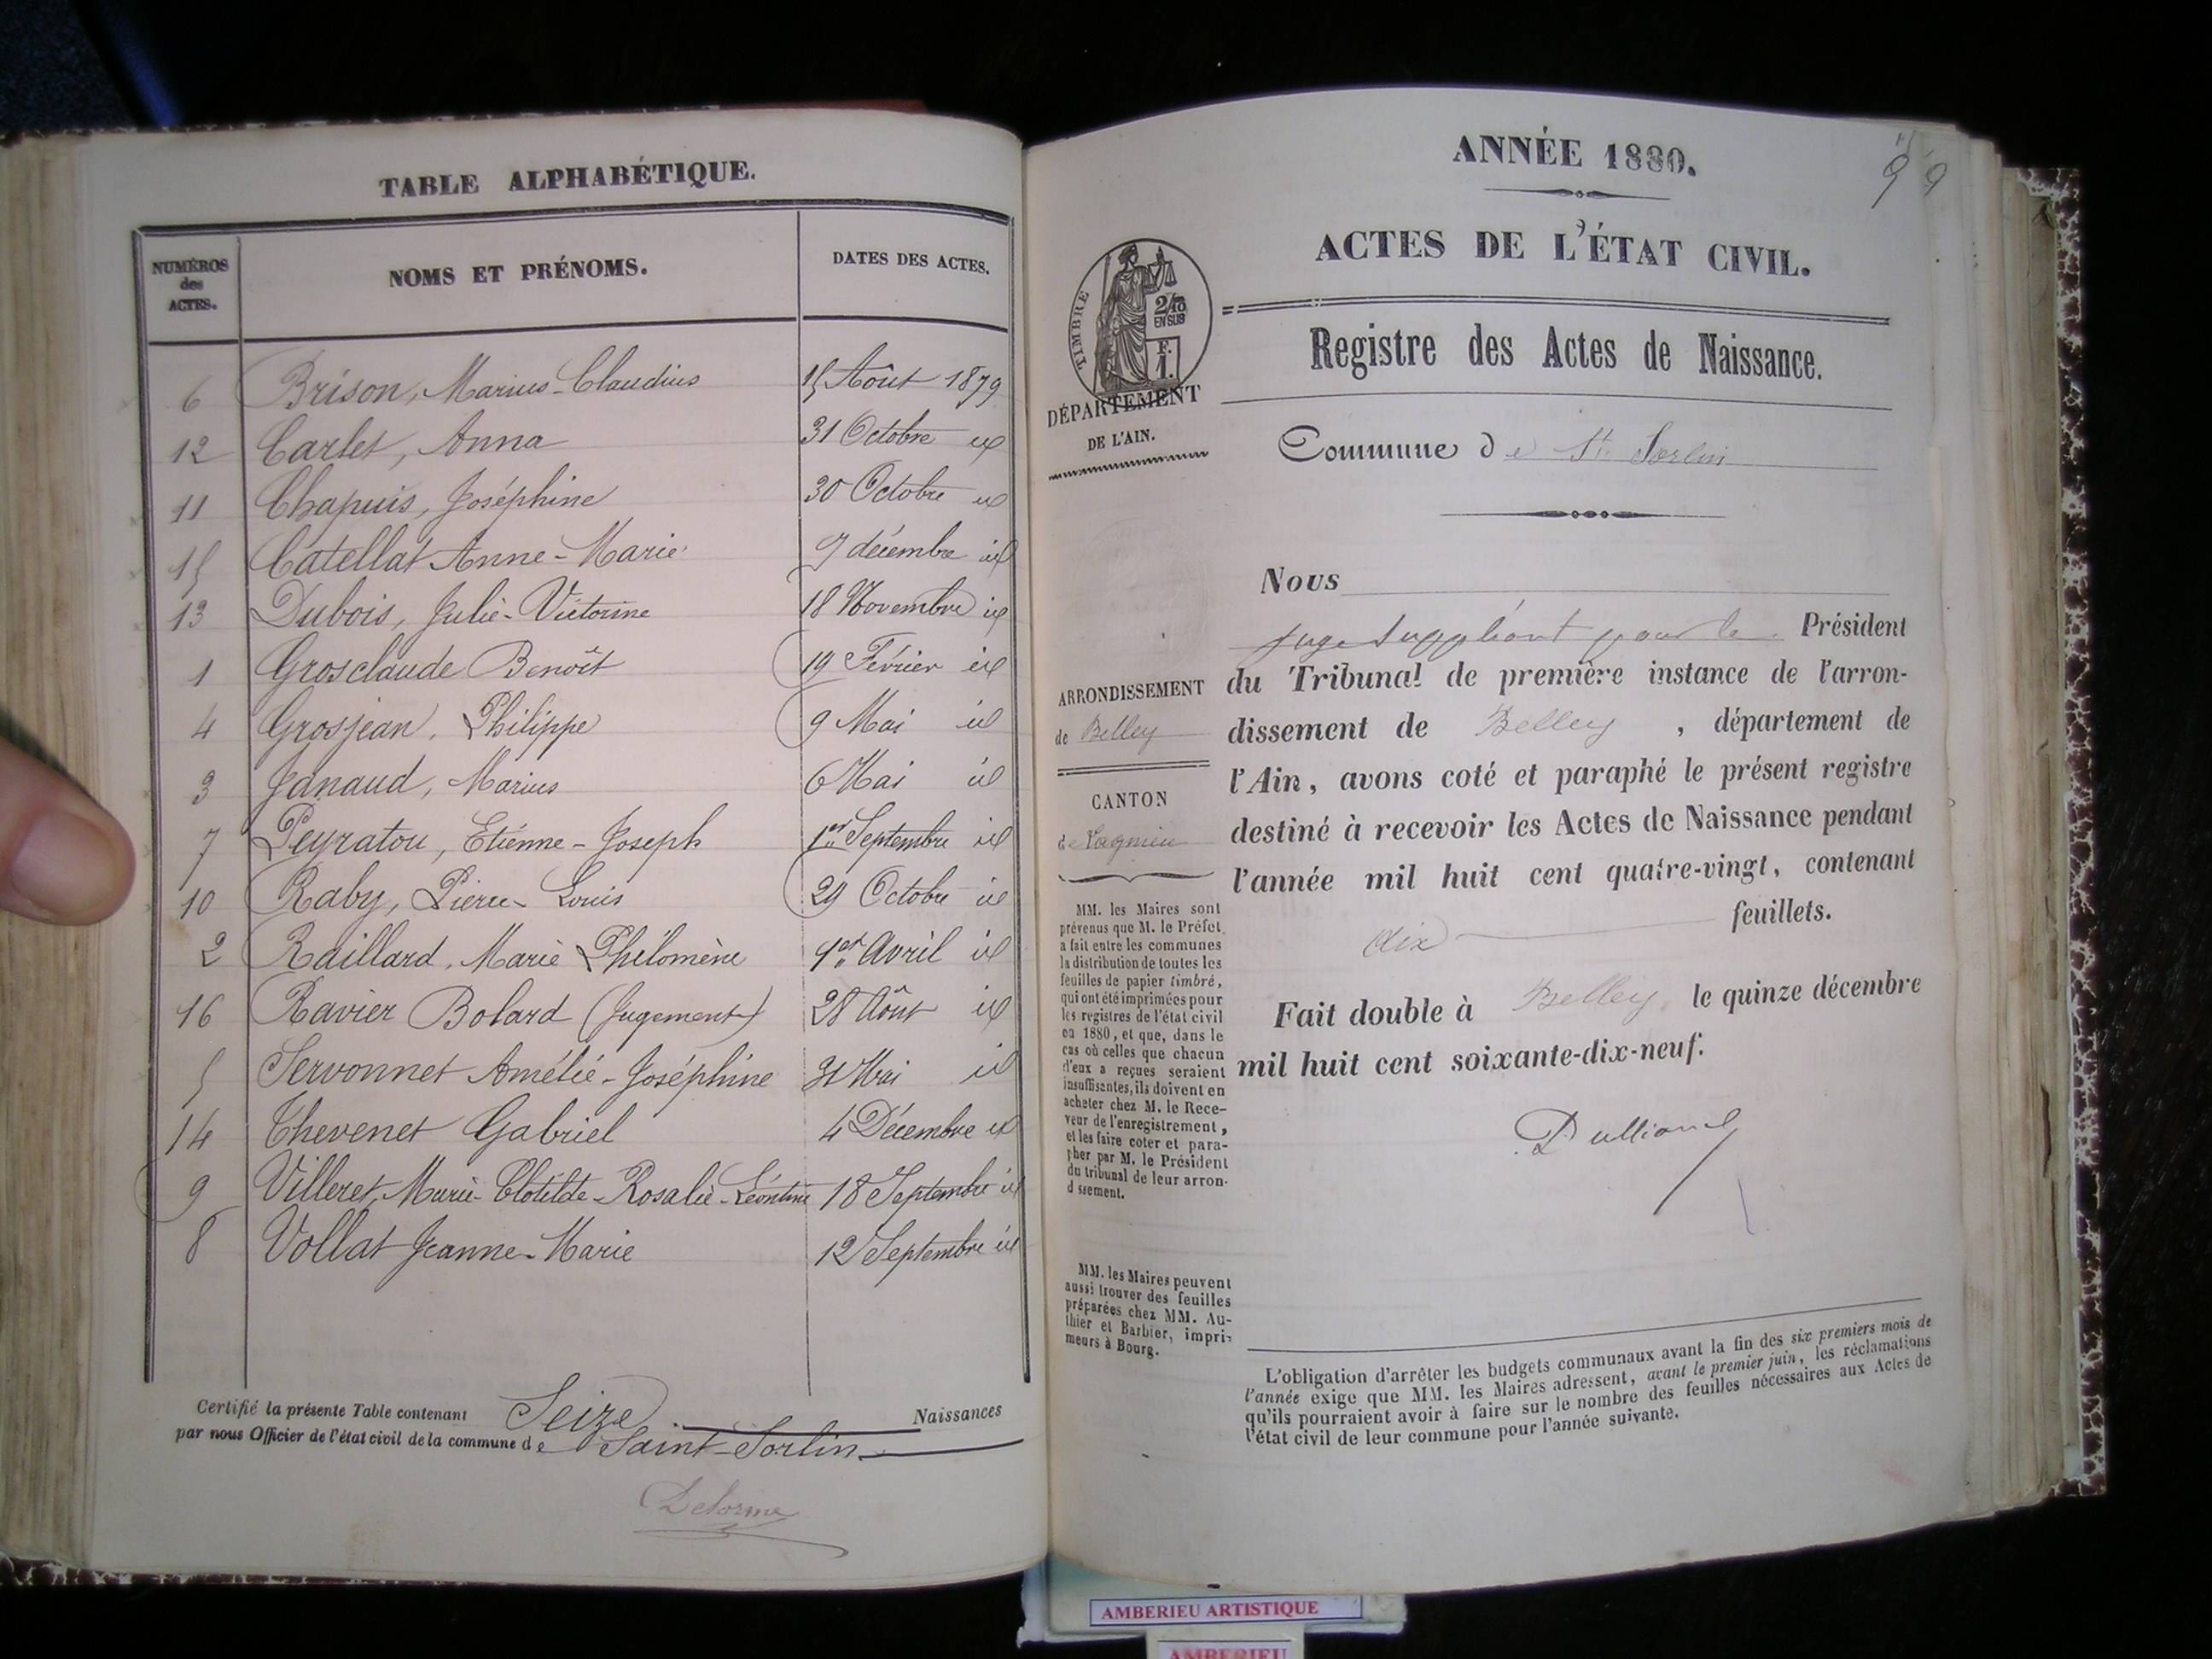 TABLE ALPHABÉTIQUE.
NUMÉROS des ACTES.
NOMS ET PRÉNOMS.
DATES DES ACTES.
6 Brison, Marius-Claudius 15 Août 1879
12 Carlet, Anna 31 Octobre id
11 Chapuis, Joséphine 30 Octobre id
15 Catellat Anne-Marie 7 décembre id
13 Dubois, Julie-Victorine 18 Novembre id
1 Grosclaude Benoît 19 Février id
4 Grosjean, Philippe 9 Mai id
3 Janaud, Marius 6 Mai id
7 Peyratou, Etienne-Joseph 1er Septembre id
10 Raby, Pierre-Louis 29 Octobre id
2 Raillard, Marie Philomène 1er Avril id
16 Ravier Bolard (Jugement) 28 Août id
5 Servonnet Amélie-Joséphine 31 Mai id
14 Thevenet Gabriel 4 Décembre id
9 Villeret, Marie-Clotilde-Rosalie-Léontine 18 Septembre id
8 Vollat Jeanne-Marie 12 Septembre id
Certifié la présente Table contenant Seize Naissances
par nous Officier de l'état civil de la commune de Saint-Sorlin
Delorme
ANNÉE 1880.
99
ACTES DE L'ÉTAT CIVIL.
Registre des Actes de Naissance.
TIMBRE
2/10
EN SUS
F.
1.
DÉPARTEMENT
DE L'AIN.
Commune de St Sorlin
Nous
juge suppléant pour le Président
du Tribunal de première instance de l'arron-
dissement de Belley, département de
l'Ain, avons coté et paraphé le présent registre
destiné à recevoir les Actes de Naissance pendant
l'année mil huit cent quatre-vingt, contenant
dix feuillets.
Fait double à Belley, le quinze décembre
mil huit cent soixante-dix-neuf.
ARRONDISSEMENT
de Belley
CANTON
de Lagnieu
MM. les Maires sont
prévenus que M. le Préfet
a fait entre les communes
la distribution de toutes les
feuilles de papier timbré,
qui ont été imprimées pour
les registres de l'état civil
en 1880, et que, dans le
cas où celles que chacun
d'eux a reçues seraient
insuffisantes, ils doivent en
acheter chez M. le Rece-
veur de l'enregistrement,
et les faire coter et para-
pher par M. le Président
du tribunal de leur arron-
dissement.
MM. les Maires peuvent
aussi trouver des feuilles
préparées chez MM. Au-
thier et Barbier, impri-
meurs à Bourg.
L'obligation d'arrêter les budgets communaux avant la fin des six premiers mois de
l'année exige que MM. les Maires adressent, avant le premier juin, les réclamations
qu'ils pourraient avoir à faire sur le nombre des feuilles nécessaires aux Actes de
l'état civil de leur commune pour l'année suivante.
AMBERIEU ARTISTIQUE
AMBERIEU